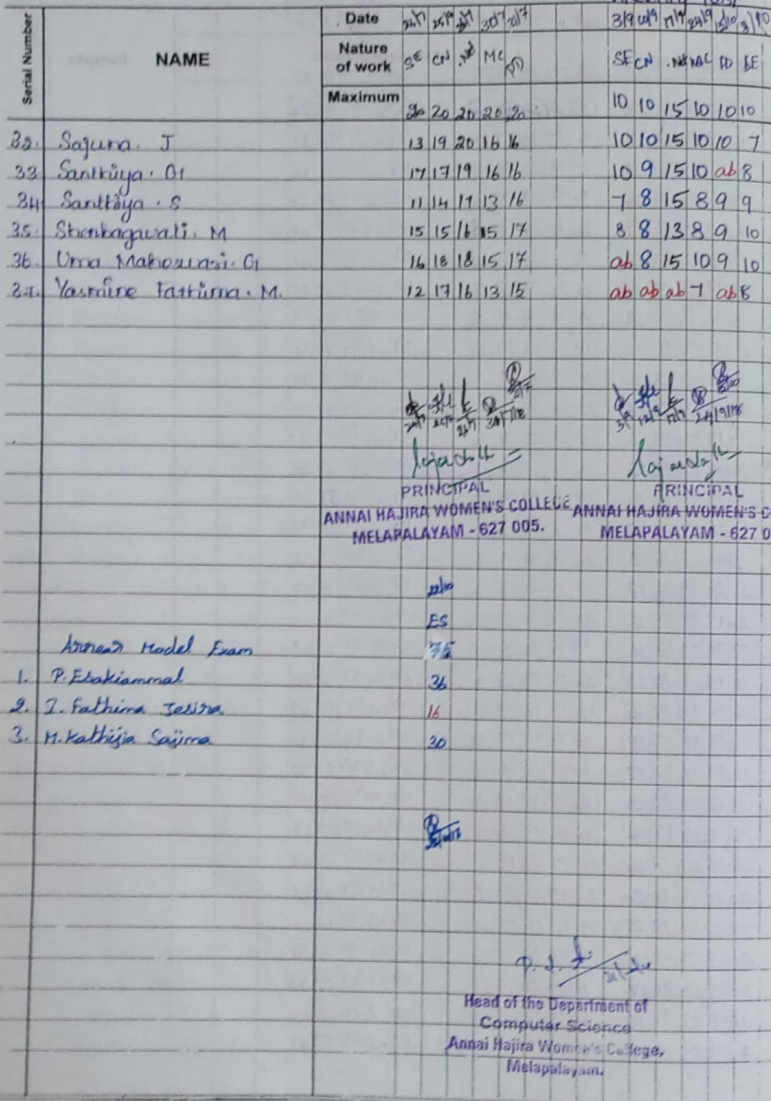 Serial Number
NAME
Date 24/7 25/7 30/7 31/7 3/9 17/9 24/9
Nature of work SE CN MC SE CN
Maximum 20 20 20 20 20 10 10 15 10 10 10
32. Sajuna. J 13 19 20 16 16 10 10 15 10 10 7
33 Santhiya. G 17 17 19 16 16 10 9 15 10 ab 8
34 Santhiya. S 11 14 17 13 16 7 8 15 8 9 9
35. Shenbagavalli. M 15 15 16 15 17 8 8 13 8 9 10
36. Uma Maheswari. G 16 18 18 15 17 ab 8 15 10 9 10
37. Yasmine Fathima. M. 12 17 16 13 15 ab ab ab 7 ab 8
24/9/18
PRINCIPAL PRINCIPAL
ANNAI HAJIRA WOMEN'S COLLEGE ANNAI HAJIRA WOMEN'S C
MELAPALAYAM - 627 005. MELAPALAYAM - 627 0
22/10
ES
Arrear Model Exam 75
1. P. Esakiammal 36
2. I. Fathima Jesira 16
3. M. Kathija Sajima 30
Head of the Department of
Computer Science
Annai Hajira Women's College,
Melapalayam.